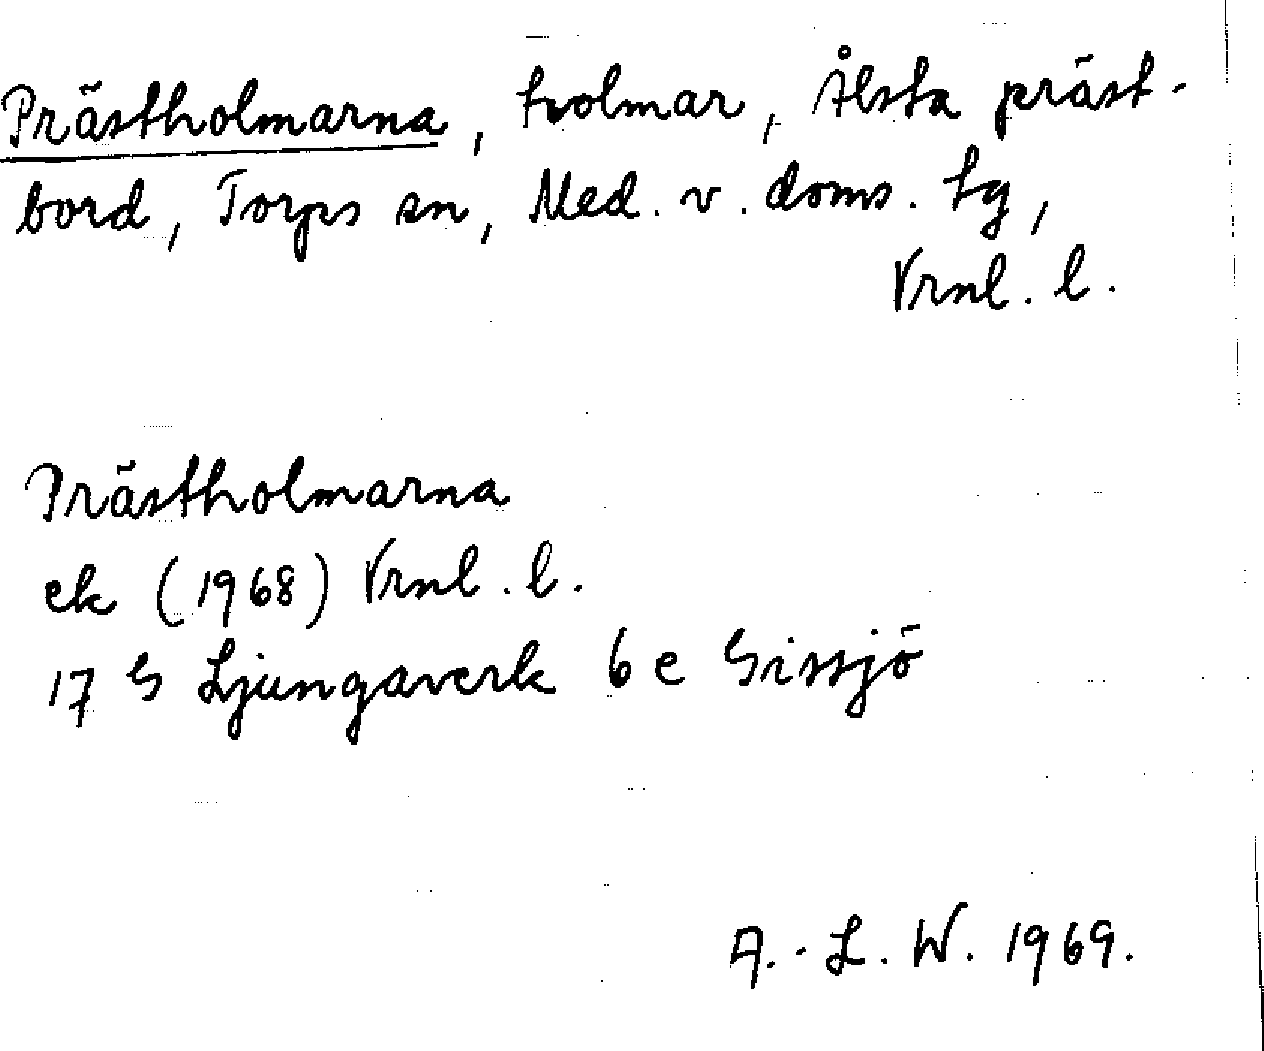 Prästholmarna, holmar, Ålsta präst-
bord, Torps sn, Med. v. doms. tg,
Vrnl. l.
Prästholmarna
ek (1968) Vrnl. l.
17 G Ljungaverk 6 e Gissjö
A.-L. W. 1969.